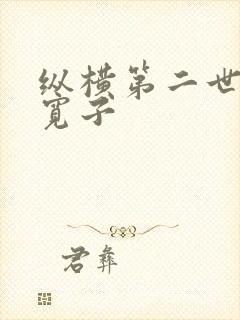 纵横第二世
宽子
君彝